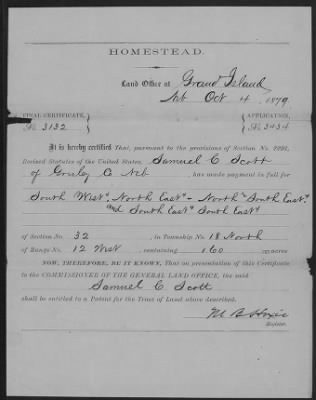 HOMESTEAD.
Land Office at Grand Island
Neb Oct 4, 1879.
FINAL CERTIFICATE,
APPLICATION,
No. 3132
No.
It is hereby certified That, pursuant to the provisions of Section No. 2291,
Revised Statutes of the United States, Samuel C Scott
of Greeley Co Neb has made payment in full for
South West¼ North East¼ - North ½ South East¼
and South East¼ South East¼
of Section No. 32 in Township No. 18 North
of Range No. 12 West, containing 160 acres
NOW, THEREFORE, BE IT KNOWN, That on presentation of this Certificate
to the COMMISSIONER OF THE GENERAL LAND OFFICE, the said
Samuel C Scott
shall be entitled to a Patent for the Tract of Land above described.
M B Hoxie
Register.